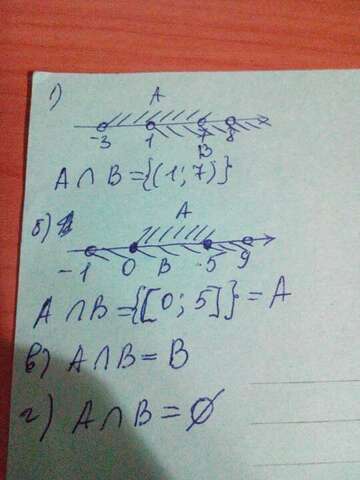 1)
A
-3 1 7 8
B
A ∩ B = {(1; 7)}
A
б)
-1 0 B 5 9
A ∩ B = {[0; 5]} = A
в) A ∩ B = B
г) A ∩ B = ∅